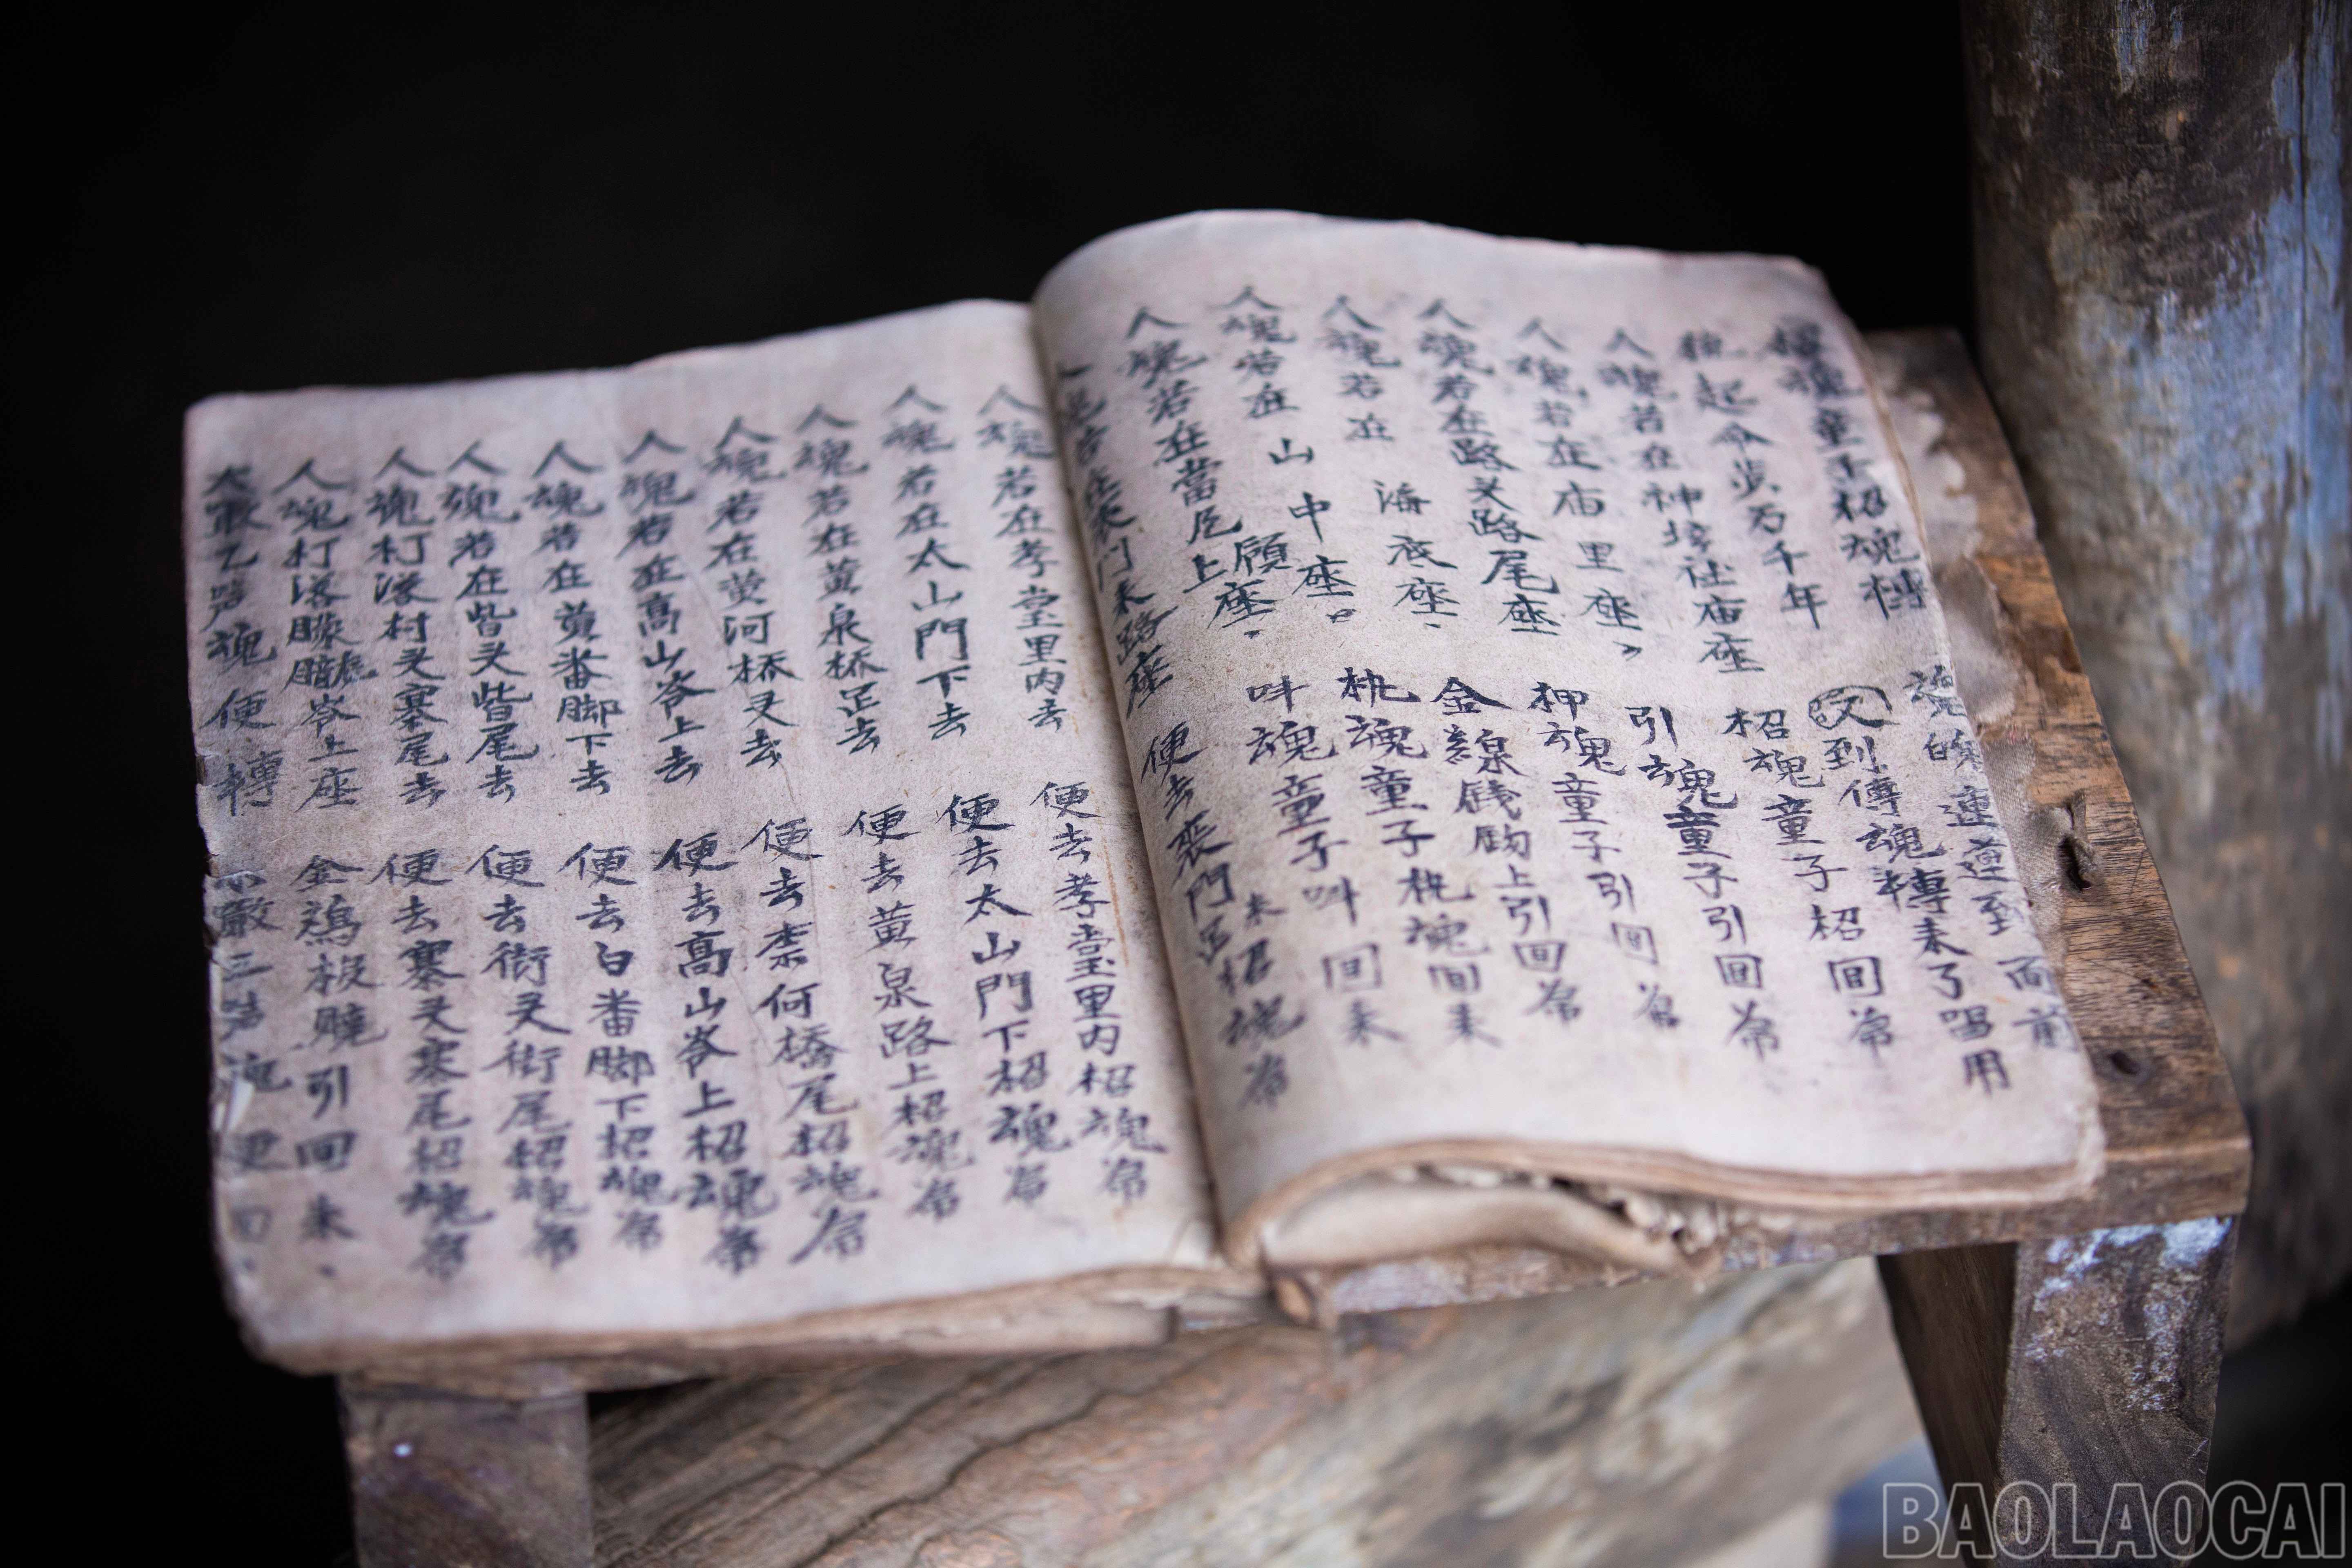 童子招魂轉 魂的 連連到 面前
起令 万千年 又到傳魂轉來了唱用
人魂若在神 社庙座 招魂童子招回帰
人魂若在庙里座 引魂童子引回帰
人魂若在路叉路尾座 押魂童子引回帰
人魂若在海底座 金線銭 上引回帰
人魂若在山中座 魂童子 魂回来
人魂若在 顧座 呌魂童子呌回来
人魂若在當 上座 来招魂帰
門来路座 便去 門
人魂若在孝堂里内去 便去孝堂里内招魂帰
人魂若在太山門下去 便去太山門下招魂帰
人魂若在黄泉桥 去 便去黄泉路上招魂帰
人魂若在黄河桥叉去 便去柰何橋尾招魂帰
人魂若在髙山岺上去 便去髙山岺上招魂帰
人魂若在黄番脚下去 便去白番脚下招魂帰
人魂若在皆叉皆尾去 便去街叉街尾招魂帰
人魂打落村叉寨尾去 便去寨叉寨尾招魂帰
人魂打落朦朧岺上座 金鴉 引回来
魂便轉 三 魂
BAOLAOCAI